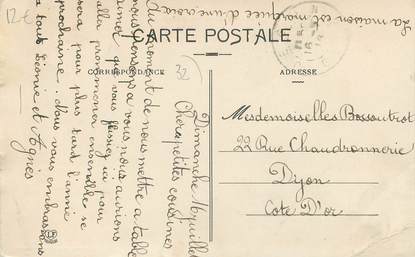 12€
La maison est marquée d'une croix
CARTE POSTALE
CORRESPONDANCE
32
ADRESSE
Dimanche 16 juillet
Chères petites cousines
Au moment de nous mettre à table
nous pensons à vous nous aurions
aimer que vous fussiez ici pour
aller promener ensemble se
sera pour plus tard l'année
prochaine. Nous vous embrassons
à tous Léonie et Agnès
Mesdemoiselles Bossoutrot
22 Rue Chaudronnerie
Dijon
Côte D'or